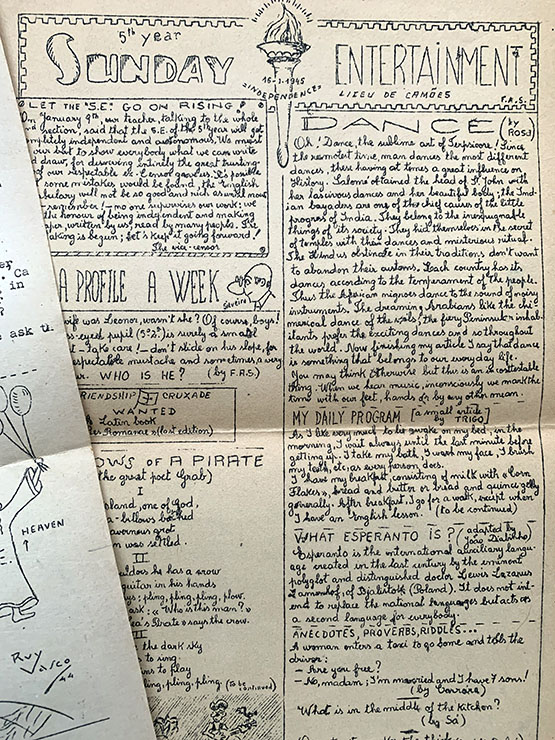 5th year
SUNDAY
ENTERTAINMENT
16-1-1945
"INDEPENDENCE"
LICEU DE CAMÕES
F.R.S.
LET THE "S.E." GO ON RISING!
On January 9th, our teacher, talking to the whole
section, said that the S.E. of the 5th year will get
completely independent and autonomous. We must
our best to show everybody what we can write
d draw, for deserving entirely the great trusting
of our respectable ex-Censor
some mistakes would be found, the English
will not be so good and rich as until now
remember! - no one supervises our work; we
the honour of being independent and making
paper, written by us, read by many people.
is begun; let's keep it going forward!
The vice-censor
A PROFILE A WEEK
wife was Leonor, wasn't she? Of course, boys!
-eyed pupil (5º2ª) is surely a small
Take care! don't slide on his slope, for
respectable mustache and sometimes a very
WHO IS HE? (by F.R.S.)
FRIENDSHIP CRUZADE
WANTED
Latin book
Romanae»(last edition)
OWS OF A PIRATE
the great poet Grab)
I
island, one of God,
a-billows
grot
was settled.
II
shoulders he has a crow
guitar in his hands
says: pling, pling, pling, plow.
ask: «Who is this man?»
Pirate» says the crow.
III
the dark sky
to sing
to play
pling, pling, pling (to be continued)
DANCE (by ROSJ)
Oh! Dance, the sublime art of Terpsicore! Since
the remotest time, man dances the most different
dances, these having at times a great influence on
History. Salomé obtained the head of St John with
her lascivious dances and her beautiful body; the Ind-
ian bayaders are one of the chief causes of the little
progress of India. They belong to the inexpugnable
things of its society. They hid themselves in the secret
of temples with their dances and misterious ritual.
The Hindus obstinate in their traditions don't want
to abandon their customs. Each country has its
dances according to the temperament of the people.
Thus the African nigroes dance to the sound of noisy
instruments. The dreaming Arabians like the chi-
merical dance of the veils, the fiery Peninsular inhab-
itants prefer the exciting dances and so throughout
the world. Now finishing my article I say that dance
is something that belongs to our everyday life.
You may think otherwise but this an incontestable
thing. When we hear music, inconsciously we mark the
time with our feet, hands or by any other mean.
MY DAILY PROGRAM (a small article by TRIGO)
As I like very much to lie awake on my bed, in the
morning, I wait always until the last minute before
getting up. I take my bath, I wash my face, I brush
my teeth, etc, as every person does.
I have my breakfast, consisting of milk with «Corn
Flakes», bread and butter or bread and quince jelly
generally. After breakfast, I go for a walk, except when
I have an English lesson. (to be continued)
WHAT ESPERANTO IS? (adapted by João
Esperanto is the international auxiliary langu-
age created in the last century by the eminent
polyglot and distinguished doctor Lewis Lazarus
Zamenhof, of Bjalistok (Poland). It does not int-
end to replace the national languages but acts as
a second language for everybody.
ANECDOTES, PROVERBS, RIDDLES...
A woman enters a taxi to go some and tells the
driver:
- Are you free?
- No, madam; I'm married and I have 7 sons!
(by Carrara)
What is in the middle of the kitchen?
(by Sá)
Ca
in
ask u.
HEAVEN
RUY
VASCO